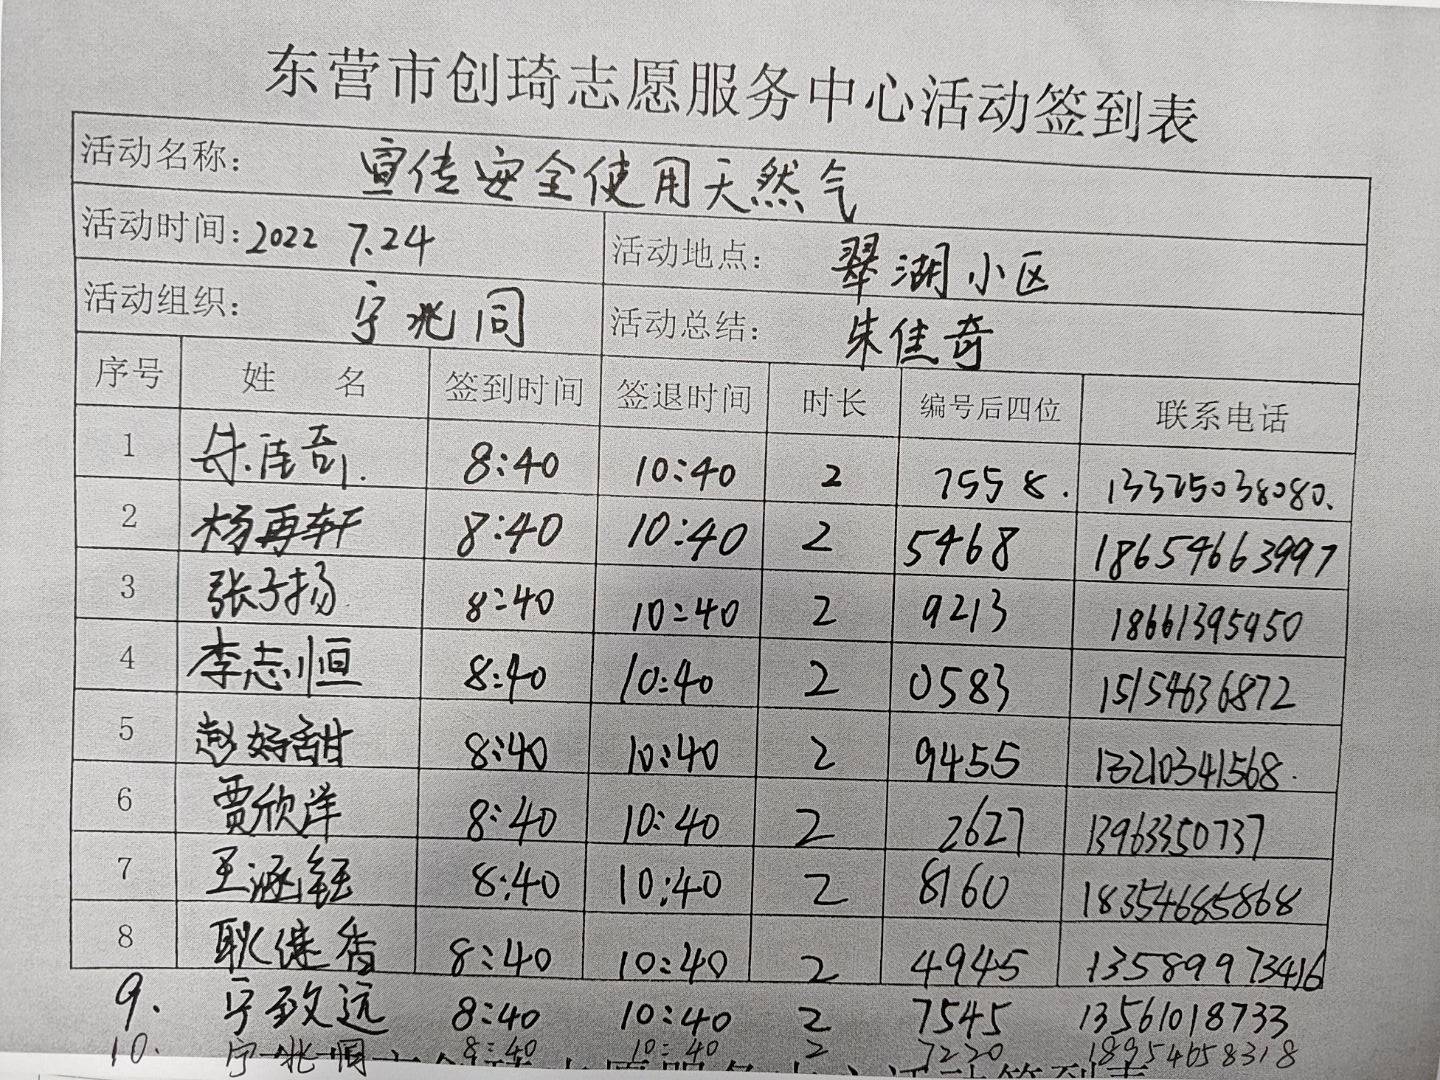 东营市创琦志愿服务中心活动签到表
活动名称： 宣传安全使用天然气
活动时间：2022 7.24 活动地点： 翠湖小区
活动组织： 宁兆同 活动总结： 朱佳奇
序号 姓 名 签到时间 签退时间 时长 编号后四位 联系电话
1 朱佳奇. 8:40 10:40 2 7558. 13325038080.
2 杨再轩 8:40 10:40 2 5468 18654663997
3 张子扬 8:40 10:40 2 9213 18661395950
4 李志恒 8:40 10:40 2 0583 15154636872
5 赵好甜 8:40 10:40 2 9455 13210341568.
6 贾欣洋 8:40 10:40 2 2627 13963350737
7 王涵钰 8:40 10:40 2 8160 18354685868
8 耿继香 8:40 10:40 2 4945 13589973416
9. 宁致远 8:40 10:40 2 7545 13561018733
10. 宁兆同 8:40 10:40 2 7220 18954658318